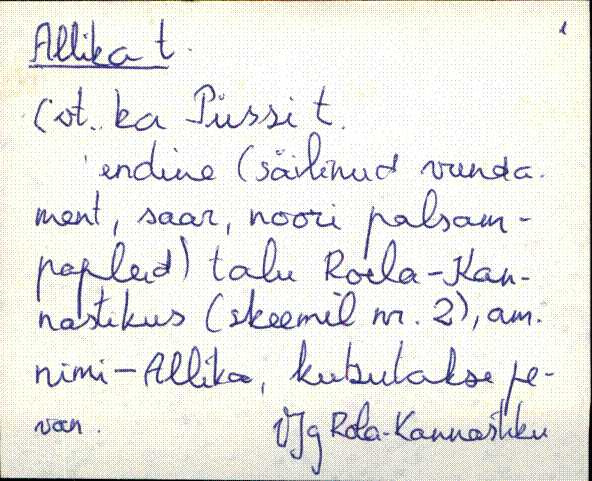 Allika t.
(vt. ka Püssi t.
endine (säilinud vunda-
ment, saar, noori palsam-
papleid) talu Roela-Kan-
nastikus (skeemil nr. 2), am.
nimi-Allika, kutsutakse pe-
VJg Roela-Kannastiku